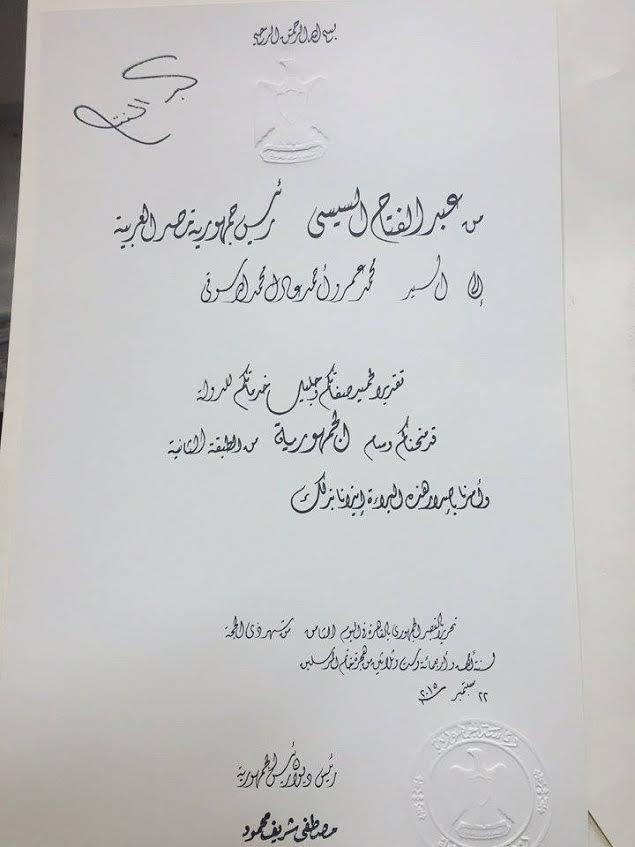 بسم الله الرحمن الرحيم
من عبد الفتاح السيسى رئيس جمهورية مصر العربية
إلى السيد محمد عمرو أحمد عادل محمد
تقديرا لحميد صفاتكم وجليل خدماتكم للدولة
قد منحناكم وسام الجمهورية من الطبقة الثانية
وأمرنا بإصدار هذه البراءة إيذانا بذلك
تحريرا بالقصر الجمهورى بالقاهرة فى اليوم الثامن من شهر ذى الحجة
لسنة ألف وأربعمائة وست وثلاثين من هجرة خاتم المرسلين
٢٢ سبتمبر سنة ٢٠١٥
رئيس ديوان رئيس الجمهورية
مصطفى شريف محمود